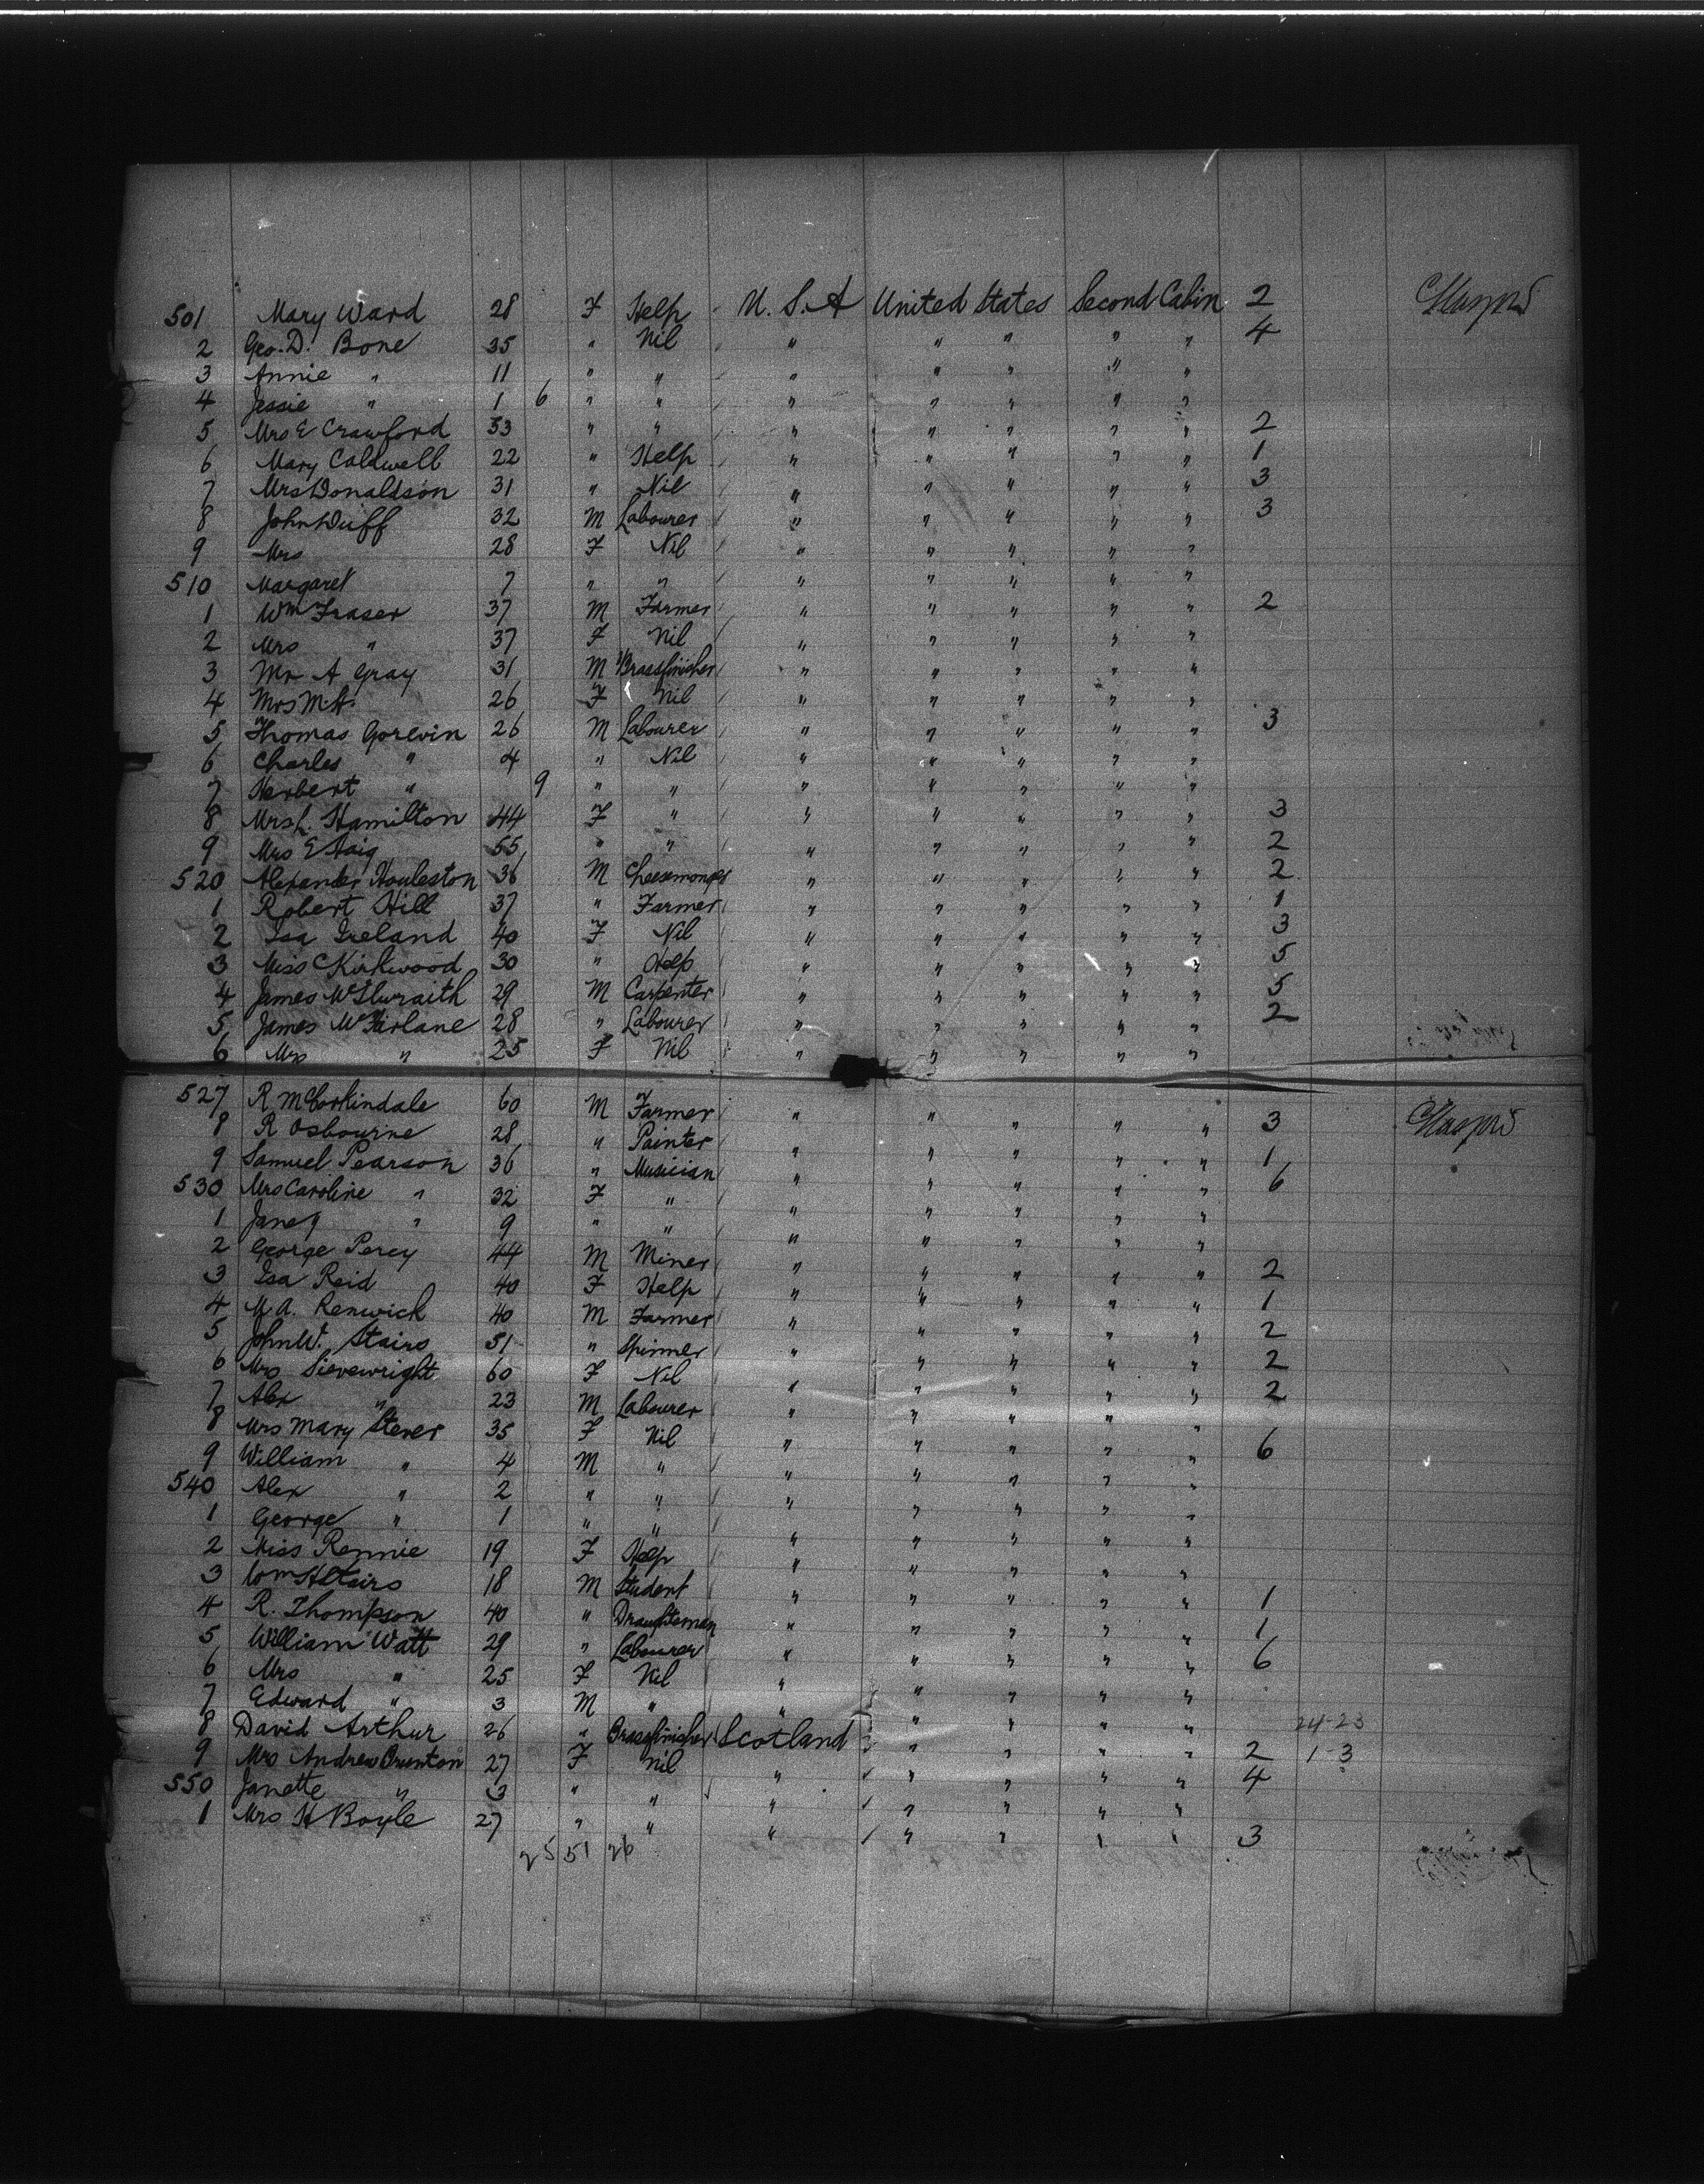 501 Mary Ward 28 F Help U.S.A United States Second Cabin 2 Glasgow
2 Geo. D. Bone 35 " Nil " " " " " 4
3 Annie " 11 " " " " " " "
4 Jessie " 1 6 " " " " " " "
5 Mrs E Crawford 53 " " " " " " " 2
6 Mary Caldwell 22 " Help " " " " " 1
7 Mrs Donaldson 31 " Nil " " " " " 3
8 John Duff 32 M Labourer " " " " " 3
9 Mrs 28 F Nil " " " " "
510 Margaret 7 " " " " " " "
1 Wm Fraser 37 M Farmer " " " " " 2
2 Mrs " 37 F Nil " " " " "
3 Mr A Gray 31 M Brassfinisher " " " " "
4 Mrs M.A. 26 F Nil " " " " "
5 Thomas Gorevin 26 M Labourer " " " " " 3
6 Charles " 4 " Nil " " " " "
7 Herbert " 9 " " " " " " "
8 Mrs L. Hamilton 44 F " " " " " " 3
9 Mrs E Haig 55 " " " " " " " 2
520 Alexander Houleston 36 M Cheesemonger " " " " " 2
1 Robert Hill 37 " Farmer " " " " " 1
2 Isa Ireland 40 F Nil " " " " " 3
3 Miss C Kirkwood 30 " Help " " " " " 5
4 James McIlwraith 29 M Carpenter " " " " " 5
5 James McFarlane 28 " Labourer " " " " " 2
6 Mrs " 25 F Nil " " " " "
527 R McCorkindale 60 M Farmer " " " " " 3 Glasgow
8 R Osbourne 28 " Painter " " " " " 1
9 Samuel Pearson 36 " Musician " " " " " 6
530 Mrs Caroline " 32 F " " " " " "
1 Janey " 9 " " " " " " "
2 George Percy 44 M Miner " " " " " 2
3 Isa Reid 40 F Help " " " " " 1
4 M.A. Renwick 40 M Farmer " " " " " 2
5 John W. Stairs 51 " Spinner " " " " " 2
6 Mrs Sievewright 60 F Nil " " " " " 2
7 Alex " 23 M Labourer " " " " "
8 Mrs Mary Stever 35 F Nil " " " " " 6
9 William " 4 M " " " " " "
540 Alex " 2 " " " " " " "
1 George " 1 " " " " " " "
2 Miss Rennie 19 F Help " " " " "
3 Wm Stairs 18 M Student " " " " " 1
4 R. Thompson 40 " Draughtsman " " " " " 1
5 William Watt 29 " Labourer " " " " " 6
6 Mrs " 25 F Nil " " " " "
7 Edward " 3 M " " " " " "
8 David Arthur 26 " Brassfinisher Scotland " " " " 2 24-23
9 Mrs Andrew Brunton 27 F Nil " " " " " 4 1-3
550 Janette " 3 " " " " " " "
1 Mrs H Boyle 27 " " " " " " " 3
25 51 26